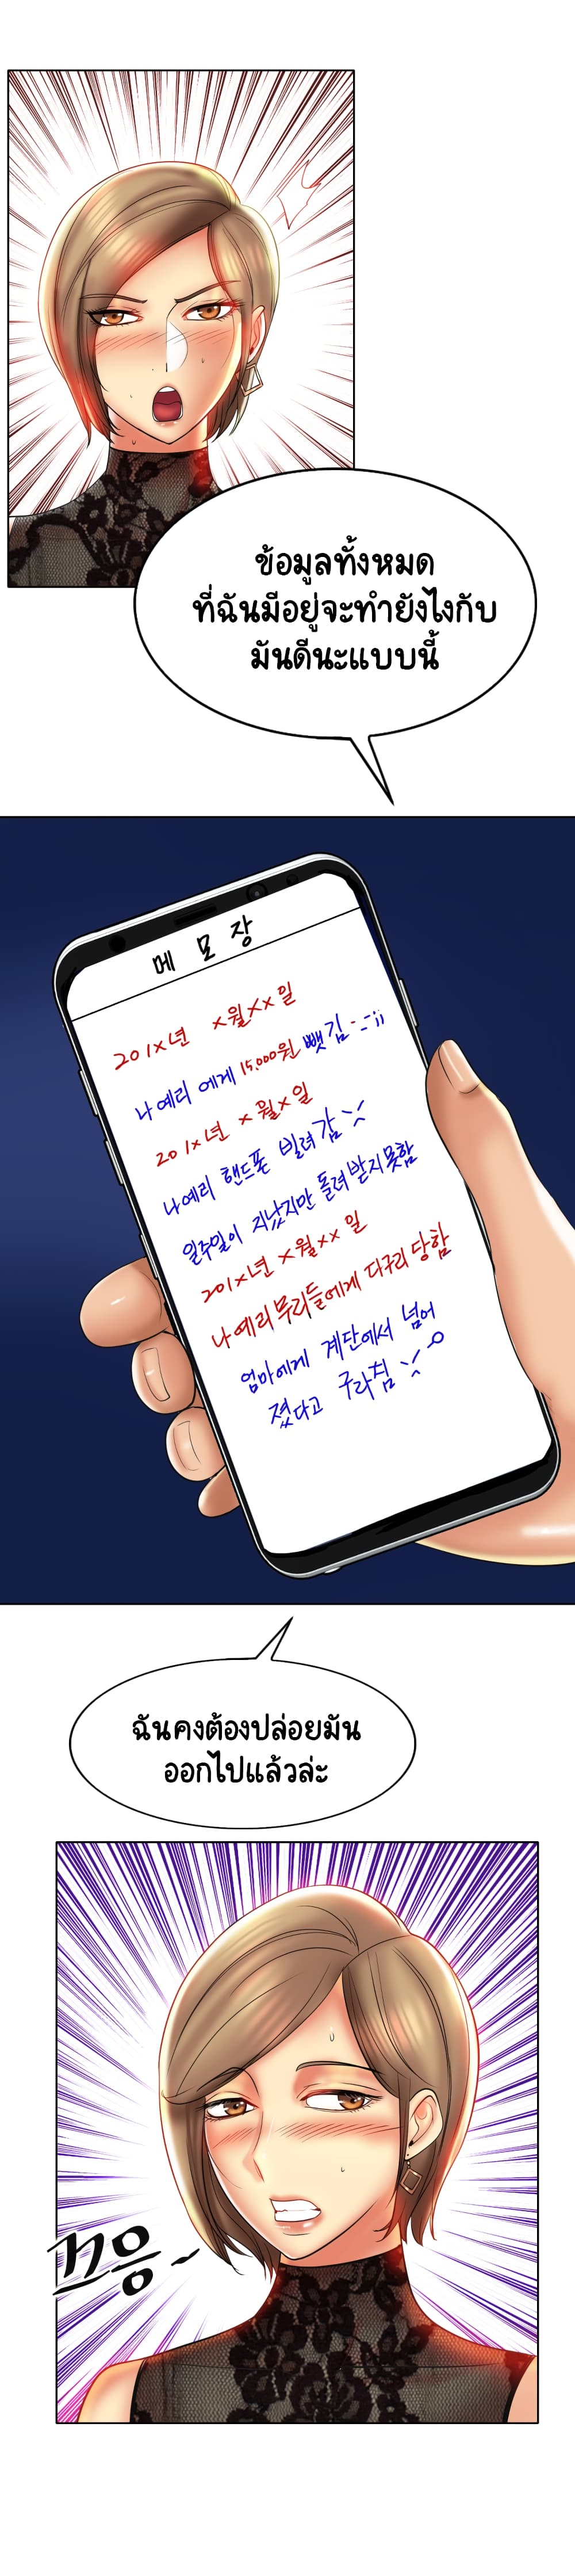 ข้อมูลทั้งหมด
ที่ฉันมีอยู่จะทำยังไงกับ
มันดีนะแบบนี้
메 모 장
201X년 X월XX일
나예리에게 15,000원 뺏김 -_-;;
201X년 X월X일
나예리 핸드폰 빌려감
일주일이 지났지만 돌려받지못함
201X년 X월XX일
나예리무리들에게 다구리 당함
엄마에게 계단에서 넘어
졌다고 구라침
ฉันคงต้องปล่อยมัน
ออกไปแล้วล่ะ
끄응~